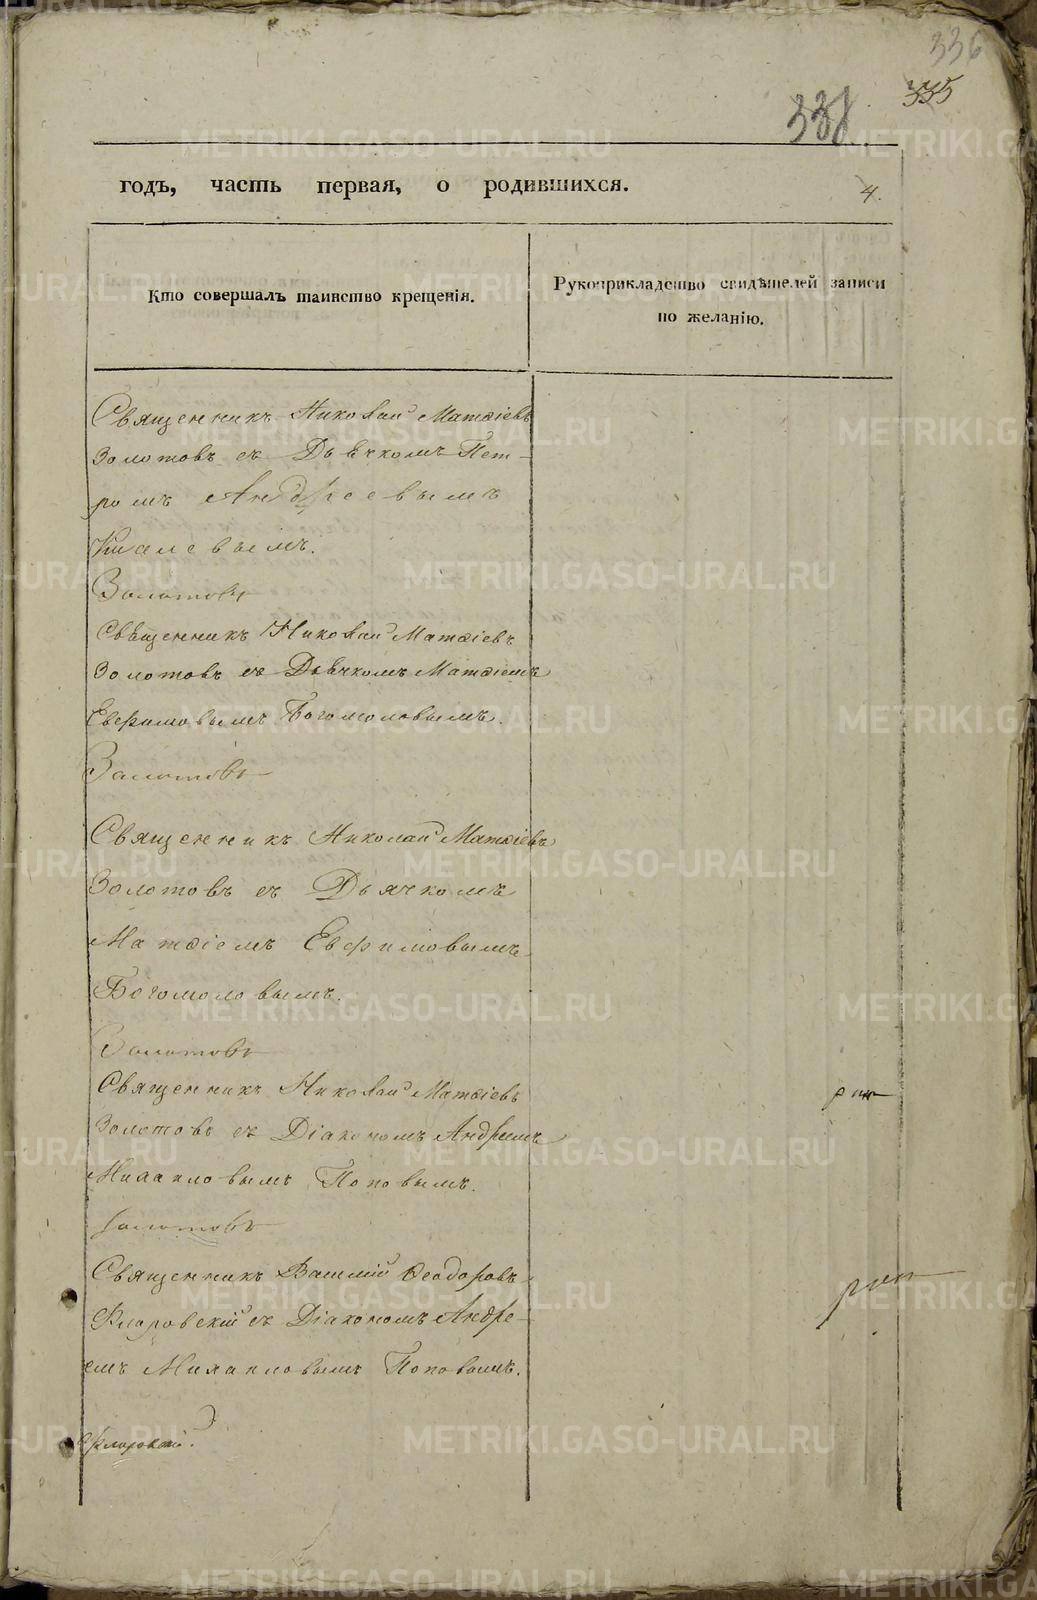 336
335
338
годъ, часть первая, о родившихся.
4.
Кто совершалъ таинство крещенія.
Рукоприкладство свидѣтелей записи
по желанію.
Священникъ Николай Матѳіевъ
Золотовъ съ Дьячкомъ Пет-
ромъ Андреевымъ
Золотовъ
Священникъ Николай Матѳіевъ
Золотовъ съ Дьячкомъ Матѳіемъ
Евфимовымъ Богомоловымъ.
Золотовъ
Священникъ Николай Матѳіевъ
Золотовъ съ Дьячкомъ
Матѳіемъ Евфимовымъ
Богомоловымъ.
Золотовъ
Священникъ Николай Матѳіевъ
Золотовъ съ Діакономъ Андреемъ
Михаиловымъ Поповымъ.
Золотовъ
Священникъ Василій Ѳеодоровъ
Флоровскій съ Діакономъ Андре-
емъ Михаиловымъ Поповымъ.
Флоровскій
METRIKI.GASO-URAL.RU